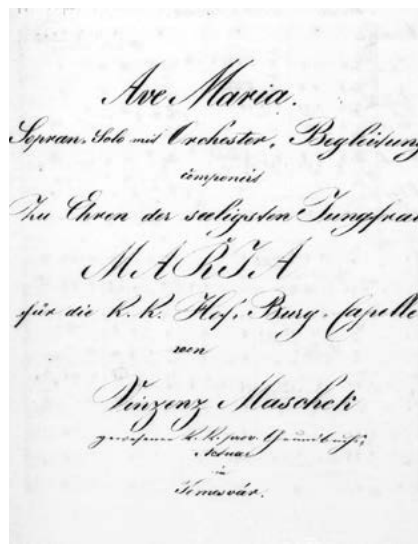 Ave Maria.
Sopran-Solo mit Orchester-Begleitung
componirt
Zu Ehren der seeligsten Jungfrau
MARIA
für die K. K. Hof-Burg-Capelle
von
Vinzenz Maschek
gewesener k. k. prov.
Actuar
in
Temesvár.